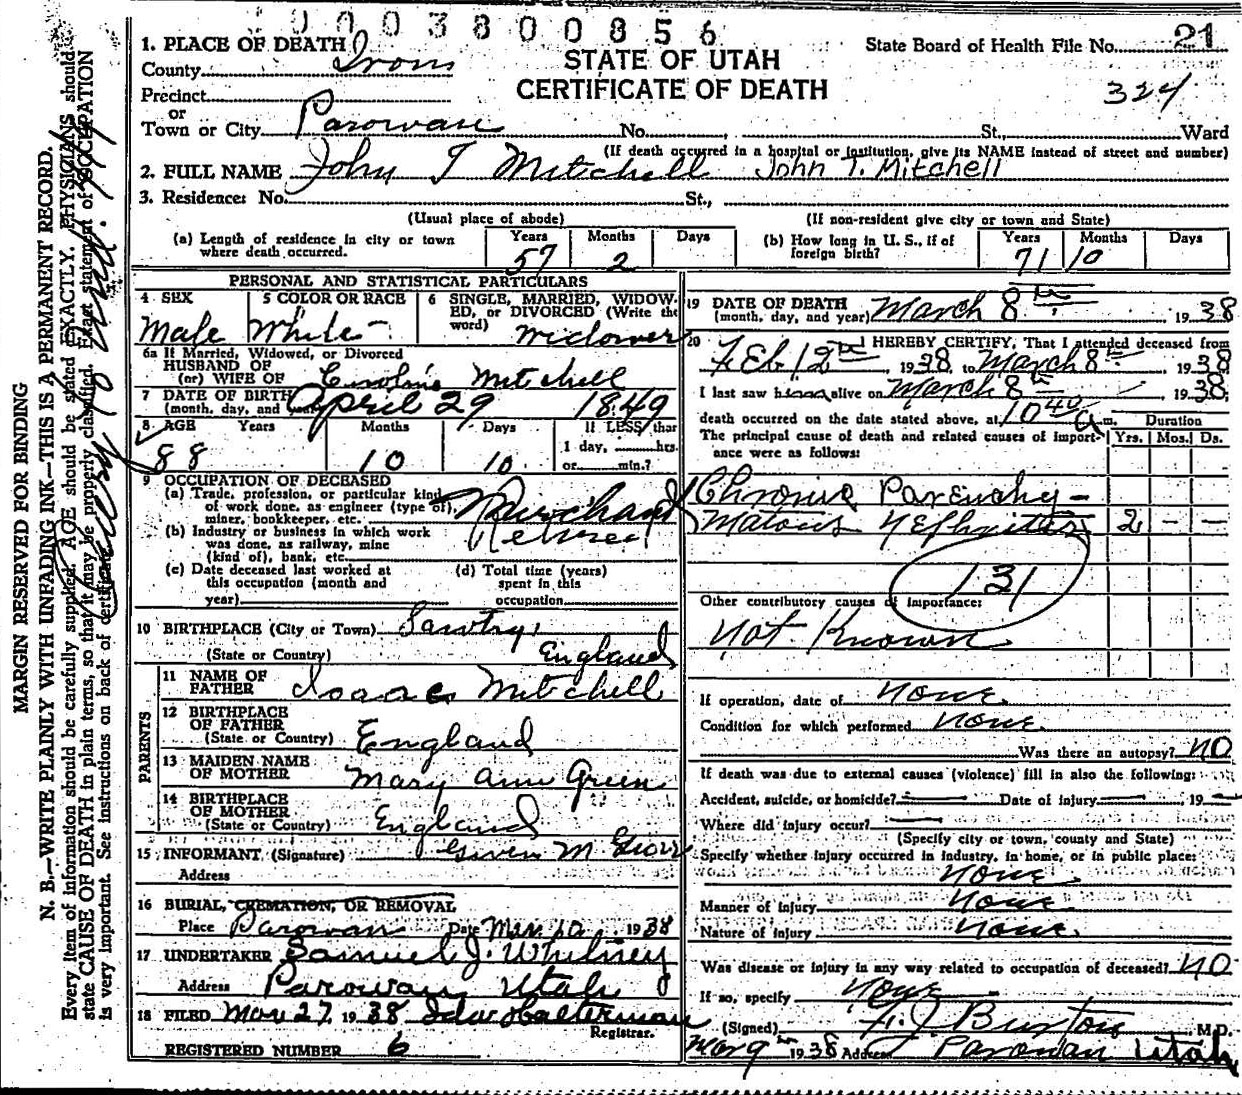 0003800856
1. PLACE OF DEATH
County Iron
STATE OF UTAH
CERTIFICATE OF DEATH
State Board of Health File No. 21
324
Precinct
or
Town or City Parowan No. , St., Ward
(If death occurred in a hospital or institution, give its NAME instead of street and number)
2. FULL NAME John T Mitchell John T. Mitchell
3. Residence: No. St.,
(Usual place of abode) (If non-resident give city or town and State)
(a) Length of residence in city or town where death occurred. Years 57 Months 2 Days
(b) How long in U. S., if of foreign birth? Years 71 Months 10 Days
PERSONAL AND STATISTICAL PARTICULARS
4 SEX Male
5 COLOR OR RACE White
6 SINGLE, MARRIED, WIDOWED, or DIVORCED (Write the word) widower
6a If Married, Widowed, or Divorced
HUSBAND OF
(or) WIFE OF Caroline Mitchell
7 DATE OF BIRTH
(month, day, and year) April 29 1849
8 AGE Years 88 Months 10 Days 10 If LESS than 1 day, hrs. or min.?
9 OCCUPATION OF DECEASED
(a) Trade, profession, or particular kind
of work done, as engineer (type of),
miner, bookkeeper, etc. Merchant
Retired
(b) Industry or business in which work
was done, as railway, mine
(kind of), bank, etc.
(c) Date deceased last worked at
this occupation (month and
year)
(d) Total time (years)
spent in this
occupation
10 BIRTHPLACE (City or Town) Sawtry,
(State or Country) England
PARENTS
11 NAME OF
FATHER Isaac Mitchell
12 BIRTHPLACE
OF FATHER
(State or Country) England
13 MAIDEN NAME
OF MOTHER Mary Ann Green
14 BIRTHPLACE
OF MOTHER
(State or Country) England
15 INFORMANT (Signature) M.
Address
16 BURIAL, CREMATION, OR REMOVAL
Place Parowan Date Mar 10 1938
17 UNDERTAKER Samuel J. Whitney
Address Parowan Utah
18 FILED Mar 27, 1938 Ida Halterman
Registrar.
REGISTERED NUMBER 6
19 DATE OF DEATH
(month, day, and year) March 8th 1938
20 I HEREBY CERTIFY, That I attended deceased from
Feb 12th, 1938 to March 8th, 1938
I last saw him alive on March 8th, 1938,
death occurred on the date stated above, at 10 40 a m.
The principal cause of death and related causes of importance were as follows:
Duration
Yrs. Mos. Ds.
Chronic Parenchy-
matous Nephritis 2 - -
131
Other contributory causes of importance:
Not Known
If operation, date of None
Condition for which performed None
Was there an autopsy? No
If death was due to external causes (violence) fill in also the following:
Accident, suicide, or homicide? Date of injury 19
Where did injury occur?
(Specify city or town, county and State)
Specify whether injury occurred in industry, in home, or in public place:
None
Manner of injury None
Nature of injury None
Was disease or injury in any way related to occupation of deceased? No
If so, specify None
(Signed) F. J. Burton M.D.
Mar 9th 1938 Address Parowan Utah
MARGIN RESERVED FOR BINDING
N. B.—WRITE PLAINLY WITH UNFADING INK—THIS IS A PERMANENT RECORD.
Every item of information should be carefully supplied. AGE should be stated EXACTLY. PHYSICIANS should
state CAUSE OF DEATH in plain terms, so that it may be properly classified. Exact statement of OCCUPATION
is very important. See instructions on back of certificate.